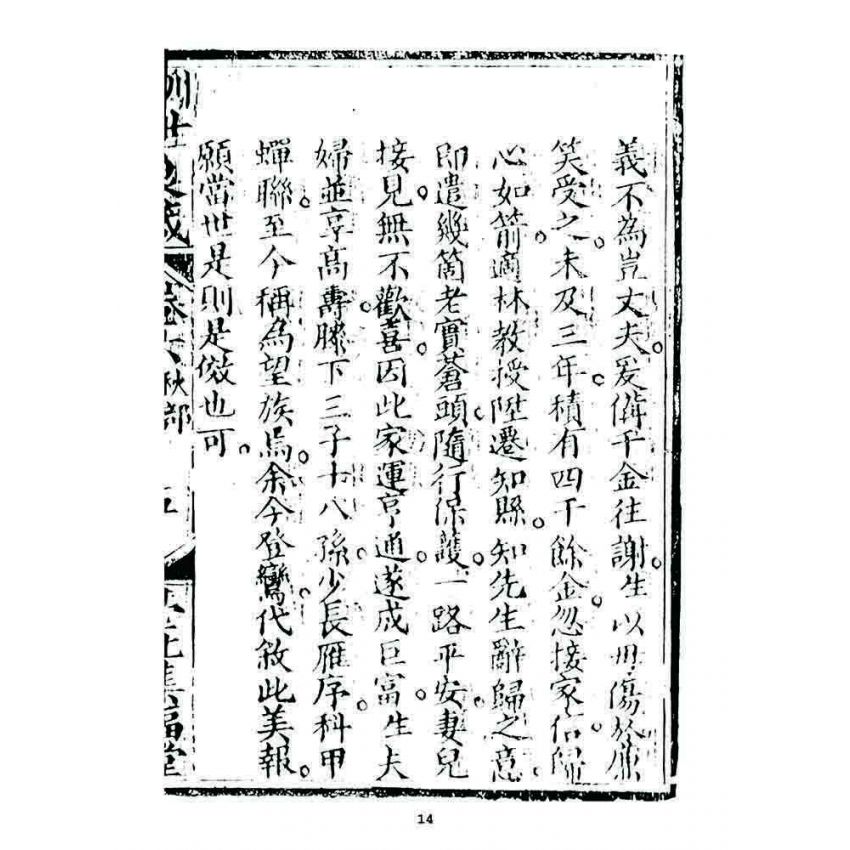 義不為豈丈夫。爰備千金往謝。生以毋傷於廉。
笑受之。未及三年。積有四千餘金。忽接家信。歸
心如箭。適林教授陞遷知縣。知先生辭歸之意。
即遣幾箇老實蒼頭。隨行保護。一路平安。妻兒
接見。無不歡喜。因此家運亨通。遂成巨富。生夫
婦並享高壽。膝下三子十八孫。少長雁序。科甲
蟬聯。至今稱為望族焉。余今登鸞。代敘此美報。
願當世是則是傚也可。
卷六 秋部
集福堂
14